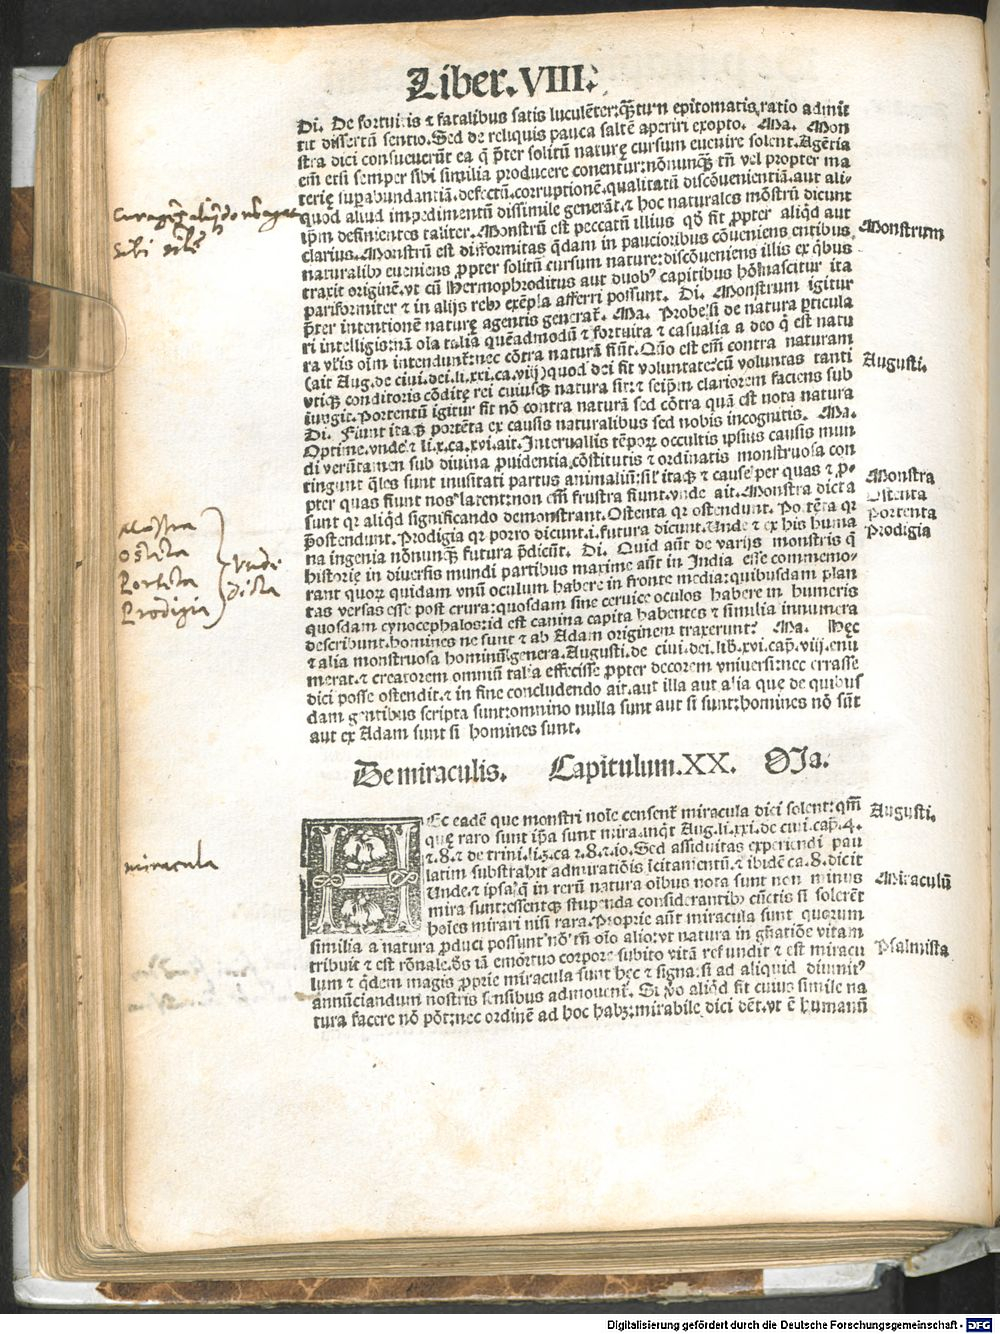 Liber.VIII.
Di. De fortuitis ⁊ fatalibus satis luculēter:q̄ȝtum epitomatis ratio admit
tit dissertū sentio. Sed de reliquis pauca saltē aperiri exopto. Ma. Mon
stra dici consueuerūt ea q̄ p̄ter solitū naturę cursum euenire solent. Agētia
em̄ etsi semper sibi similia producere conentur:nōnunqȝ tn̄ vel propter ma
terię suꝑabundantiā.defectū.corruptionē.qualitatū discōuenientiā.aut ali-
quod aliud impedimentū dissimile generāt.⁊ hoc naturales mōstrū dicunt
ip̄m definientes taliter. Monstrū est peccatū illius qd̄ fit ꝓpter aliqd̄ aut
clarius. Monstrū est difformitas q̄dam in paucioribus cōueniens entibus
naturalibꝰ eueniens ꝓpter solitū cursum nature:discōueniens illis ex q̄bus
traxit originē.vt cū Hermophroditus aut duobꝰ capitibus hō nascitur ita
pariformiter ⁊ in alijs rebꝰ exēpla afferri possunt. Di. Monstrum igitur
p̄ter intentionē naturę agentis generat̄. Ma. Probe:si de natura ꝑticula
ri intelligis:nā oīa talia quēadmodū ⁊ fortuita ⁊ casualia a deo q̄ est natu
ra vl̄is oīm intendunt̄:nec cōtra naturā fiūt. Qūo est em̄ contra naturam
(ait Aug.de ciui.dei.li.xxi.ca.viij)quod dei fit voluntate:cū voluntas tanti
vtiqȝ conditoris cōditę rei cuiusqȝ natura sit:⁊ seip̄m clariorem faciens sub
iūngit. Portentū igitur fit nō contra naturā sed cōtra quā est nota natura
Di. Fiunt itaqȝ portēta ex causis naturalibus sed nobis incognitis. Ma.
Optime.vnde ⁊ li.x.ca.xvi.ait. Interuallis tēpoꝝ occultis ipsius causis mun
di verūtamen sub diuina ꝓuidentia cōstitutis ⁊ ordinatis monstruosa con
tingunt q̄les sunt inusitati partus animaliū:sil̄ itaqȝ ⁊ cause per quas ⁊ ꝓ-
pter quas fiunt nos latent:non em̄ frustra fiunt.vnde ait. Monstra dicta
sunt qꝛ aliqd̄ significando demonstrant. Ostenta qꝛ ostendunt. Portēta qꝛ
p̄ostendunt. Prodigia qꝛ porro dicunt.i.futura dicunt. Unde ⁊ ex his huma
na ingenia nōnunqȝ futura p̄dicūt. Di. Quid aūt de varijs monstris q̄
historię in diuersis mundi partibus maxime aūt in India esse commemo-
rant quoꝝ quidam vnū oculum habere in fronte media:quibusdam plan
tas versas esse post crura:quosdam sine ceruice oculos habere in humeris
quosdam cynocephalos:id est canina capita habentes ⁊ similia innumera
describunt.homines ne sunt ⁊ ab Adam originem traxerunt? Ma. Hęc
⁊ alia monstruosa hominū genera. Augusti.de ciui.dei.lib̄.xvi.cap̄.viij.enu
merat.⁊ creatorem omniū talia effecisse ꝓpter decorem vniuersi:nec errasse
dici posse ostendit.⁊ in fine concludendo ait.aut illa aut alia quę de quibus
dam gentibus scripta sunt:omnino nulla sunt aut si sunt:homines nō sūt
aut ex Adam sunt si homines sunt.
De miraculis. Capitulum.XX.
HEc eadē que monstri noīe censent̄ miracula dici solent:qm̄
quę raro sunt ip̄a sunt mira.inq̄t Aug.li.xxi.de ciui.cap̄.4.
⁊.8.⁊ de trini.li.3.ca 2.8.⁊.10. Sed assiduitas experiendi pau
latim substrahit admiratiōis īcitamentū.⁊ ibidē ca.8.dicit
Unde.⁊ ipsa q̄ in rerū natura oībus nota sunt non minus
mira sunt:essentqȝ stupenda considerantibꝰ cūctis si solerēt
hoīes mirari nisi rara. Proprie aūt miracula sunt quorum
similia a natura ꝓduci possunt nō tn̄ oīo alio:vt natura in gn̄atiōe vitam
tribuit ⁊ est rōnale.d̄s iā emōrtuo corpore subito vitā refundit ⁊ est miracu
lum ⁊ q̄dem magis ꝓprie miracula sunt hęc ⁊ signa.si ad aliquid diuinitꝰ
annūciandum nostris sensibus admouent̄. Si v̊o aliqd̄ fit cuius simile na
tura facere nō pōt:nec ordinē ad hoc habȝ:mirabile dici dēt.vt ē humanū
Monstrum
Augusti.
Monstra
Ostenta
Portenta
Prodigia
Augusti.
Miraculū
Psalmista
sibi
Mōstra
Ostēta
Portēta
Prodigia
Vnde
dicta
miracula
Digitalisierung gefördert durch die Deutsche Forschungsgemeinschaft - DFG